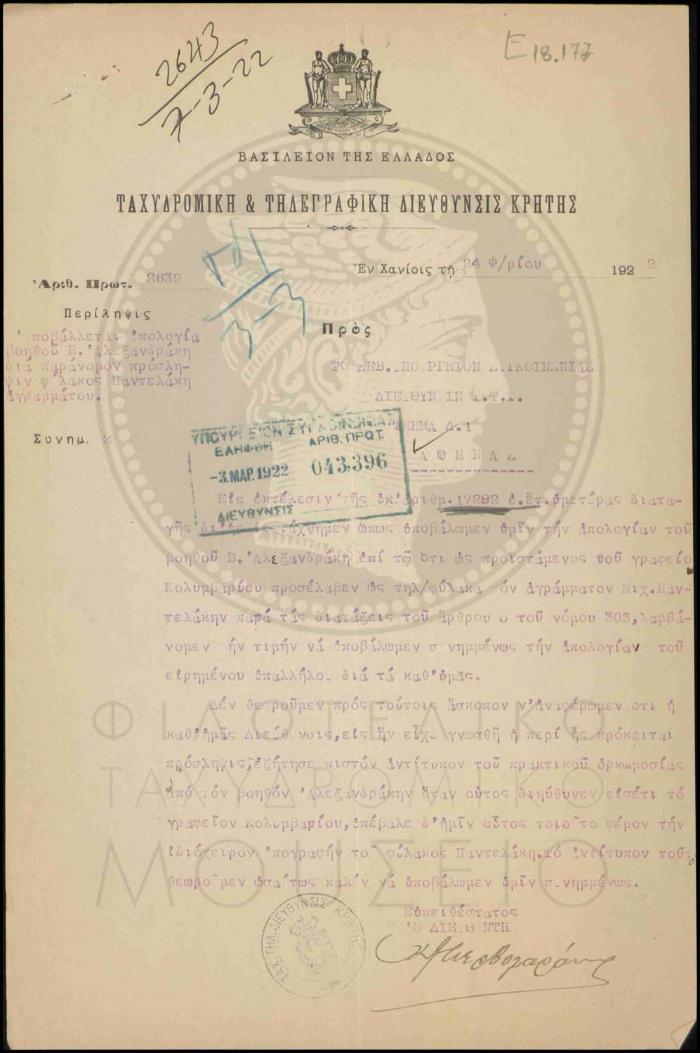 2643
7-3-22
E 18.177
ΒΑΣΙΛΕΙΟΝ ΤΗΣ ΕΛΛΑΔΟΣ
ΤΑΧΥΔΡΟΜΙΚΗ & ΤΗΛΕΓΡΑΦΙΚΗ ΔΙΕΥΘΥΝΣΙΣ ΚΡΗΤΗΣ
Ἀριθ. Πρωτ. 2639
Ἐν Χανίοις τῇ 24 Φ/ρίου 1922
Περίληψις
Πρὸς
Ὑποβάλλεται ἀπολογία
βοηθοῦ Β. Ἀλεξανδράκη
διά παράνομον πρόσλη-
ψιν φύλακος Παντελάκη
ἀγραμμάτου.
Συνημ. 2
ΤΟ ΣΕΒ. ΥΠΟΥΡΓΕΙΟΝ ΣΥΓΚΟΙΝΩΝΙΑΣ
ΔΙΕΥΘΥΝΣΙΝ Τ.Τ.Τ.
ΤΜΗΜΑ Δ.1
ΑΘΗΝΑΣ
ΥΠΟΥΡΓΕΙΟΝ ΣΥΓΚΟΙΝΩΝΙΑΣ
ΕΛΗΦΘΗ ΑΡΙΘ. ΠΡΩΤ.
-3. ΜΑΡ. 1922 043.396
ΔΙΕΥΘΥΝΣΙΣ
Εἰς ἐκτέλεσιν τῆς ὑπ'ἀριθμ. 17292 ἐ.ἔτ. ὑμετέρας διατα-
γῆς δι' ἧς ὅπως ὑποβάλωμεν ὑμῖν τήν ἀπολογίαν τοῦ
βοηθοῦ Β. Ἀλεξανδράκη ἐπί τῷ ὅτι ὡς προϊστάμενος τοῦ γραφείο
Κολυμβαρίου προσέλαβεν ὡς τηλ/φύλακα τόν ἀγράμματον Μιχ. Παν-
τελάκην παρά τάς διατάξεις τοῦ ἄρθρου τοῦ νόμου 303, λαμβά-
νομεν τήν τιμήν νά ὑποβάλωμεν συνημμένως τήν ἀπολογίαν τοῦ
εἰρημένου ὑπαλλήλου διά τά καθ'ὑμᾶς.
Δέν θεωροῦμεν πρός τούτοις ἄσκοπον ν'ἀναφέρωμεν ὅτι ἡ
καθ'ἡμᾶς Διεύθυνσις, εἰς ἥν εἶχε γνωσθῆ ἡ περί ἧς πρόκειται
πρόσληψις, ἐζήτησε πιστόν ἀντίτυπον τοῦ πρακτικοῦ ὁρκωμοσίας
ἀπό τόν βοηθόν Ἀλεξανδράκην ὅταν οὗτος διηύθυνεν εἰσέτι τό
γραφεῖον Κολυμβαρίου, ὑπέβαλε δ'ἡμῖν οὗτος τοιοῦτο φέρον τήν
ἰδιόχειρον ὑπογραφήν τοῦ φύλακος Παντελάκη. Τό ἀντίτυπον τοῦτο
θεωροῦμεν ὡσαύτως καλόν νά ὑποβάλωμεν ὑμῖν συνημμένως.
Εὐπειθέστατος
Ὁ ΔΙΕΥΘΥΝΤΗΣ
ΤΑΧ. ΤΗΛ. ΔΙΕΥΘΥΝΣΙΣ ΚΡΗΤΗΣ
ΦΙΛΟΤΕΛΙΚΟ
ΤΑΧΥΔΡΟΜΙΚΟ
ΜΟΥΣΕΙΟ